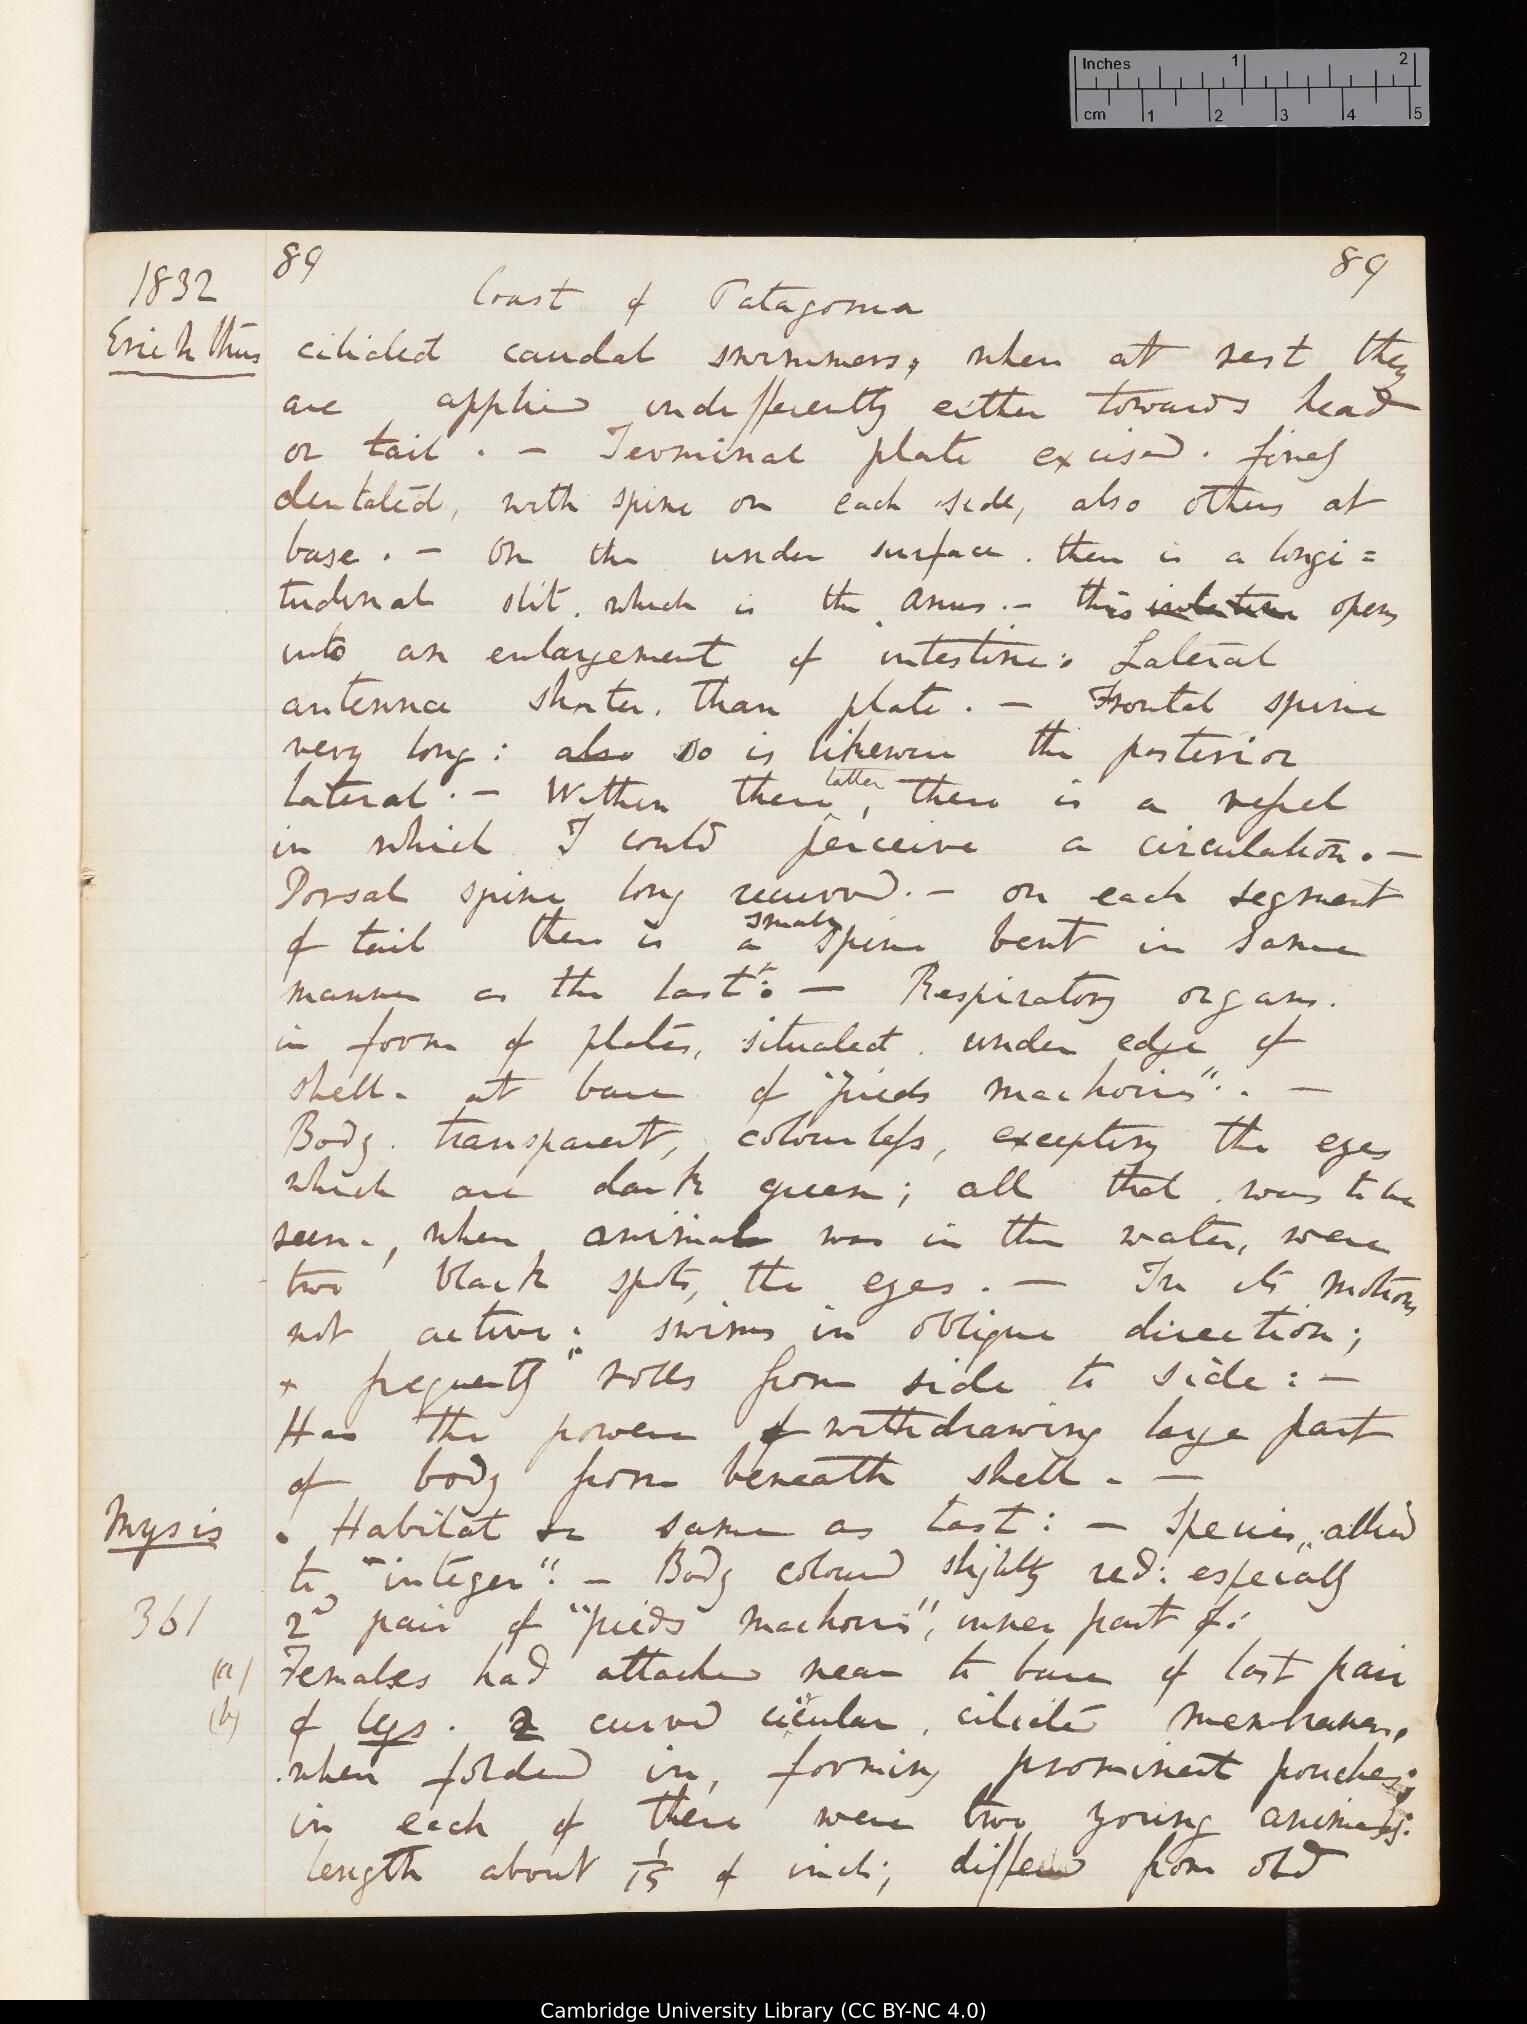 Inches 1 2
cm 1 2 3 4 5
89 89
1832
Coast of Patagonia
Erichthus ciliated caudal swimmers, when at rest they
are applied indifferently either towards head
or tail. — Terminal plate excised. finely
dentated, with spine on each side, also others at
base. — On the under surface. there is a longi=
tudinal slit. which is the anus. — this intestine opens
into an enlargement of intestine: Lateral
antennæ shorter. than plate. — Frontal spine
very long: also so is likewise the posterior
lateral. — Within these latter, there is a vessel
in which I could perceive a circulation. —
Dorsal spine long recurved. — on each segment
of tail there is a small spine bent in same
manner as the last: — Respiratory organs.
in form of plates, situated. under edge of
shell. at base of "pieds machoires". —
Body. transparent, colourless, excepting the eyes
which are dark green; all that was to be
seen, when animal was in the water, were
two black spots, the eyes. — In its motions
not active: swims in oblique direction;
+ frequently "rolls from side to side: —
Has the power of withdrawing large part
of body from beneath shell. —
Mysis . Habitat same as last: — Species, allied
to "integer". — Body coloured slightly red: especially
361 2d pair of "pieds machoires", inner part of:
(a) Females had attached near to base of last pair
(b) of legs. 2 curved circular, ciliated membranes,
when folded in, forming prominent pouches;
in each of these were two young animals:
length about 1/15 of inch; differed from old
Cambridge University Library (CC BY-NC 4.0)